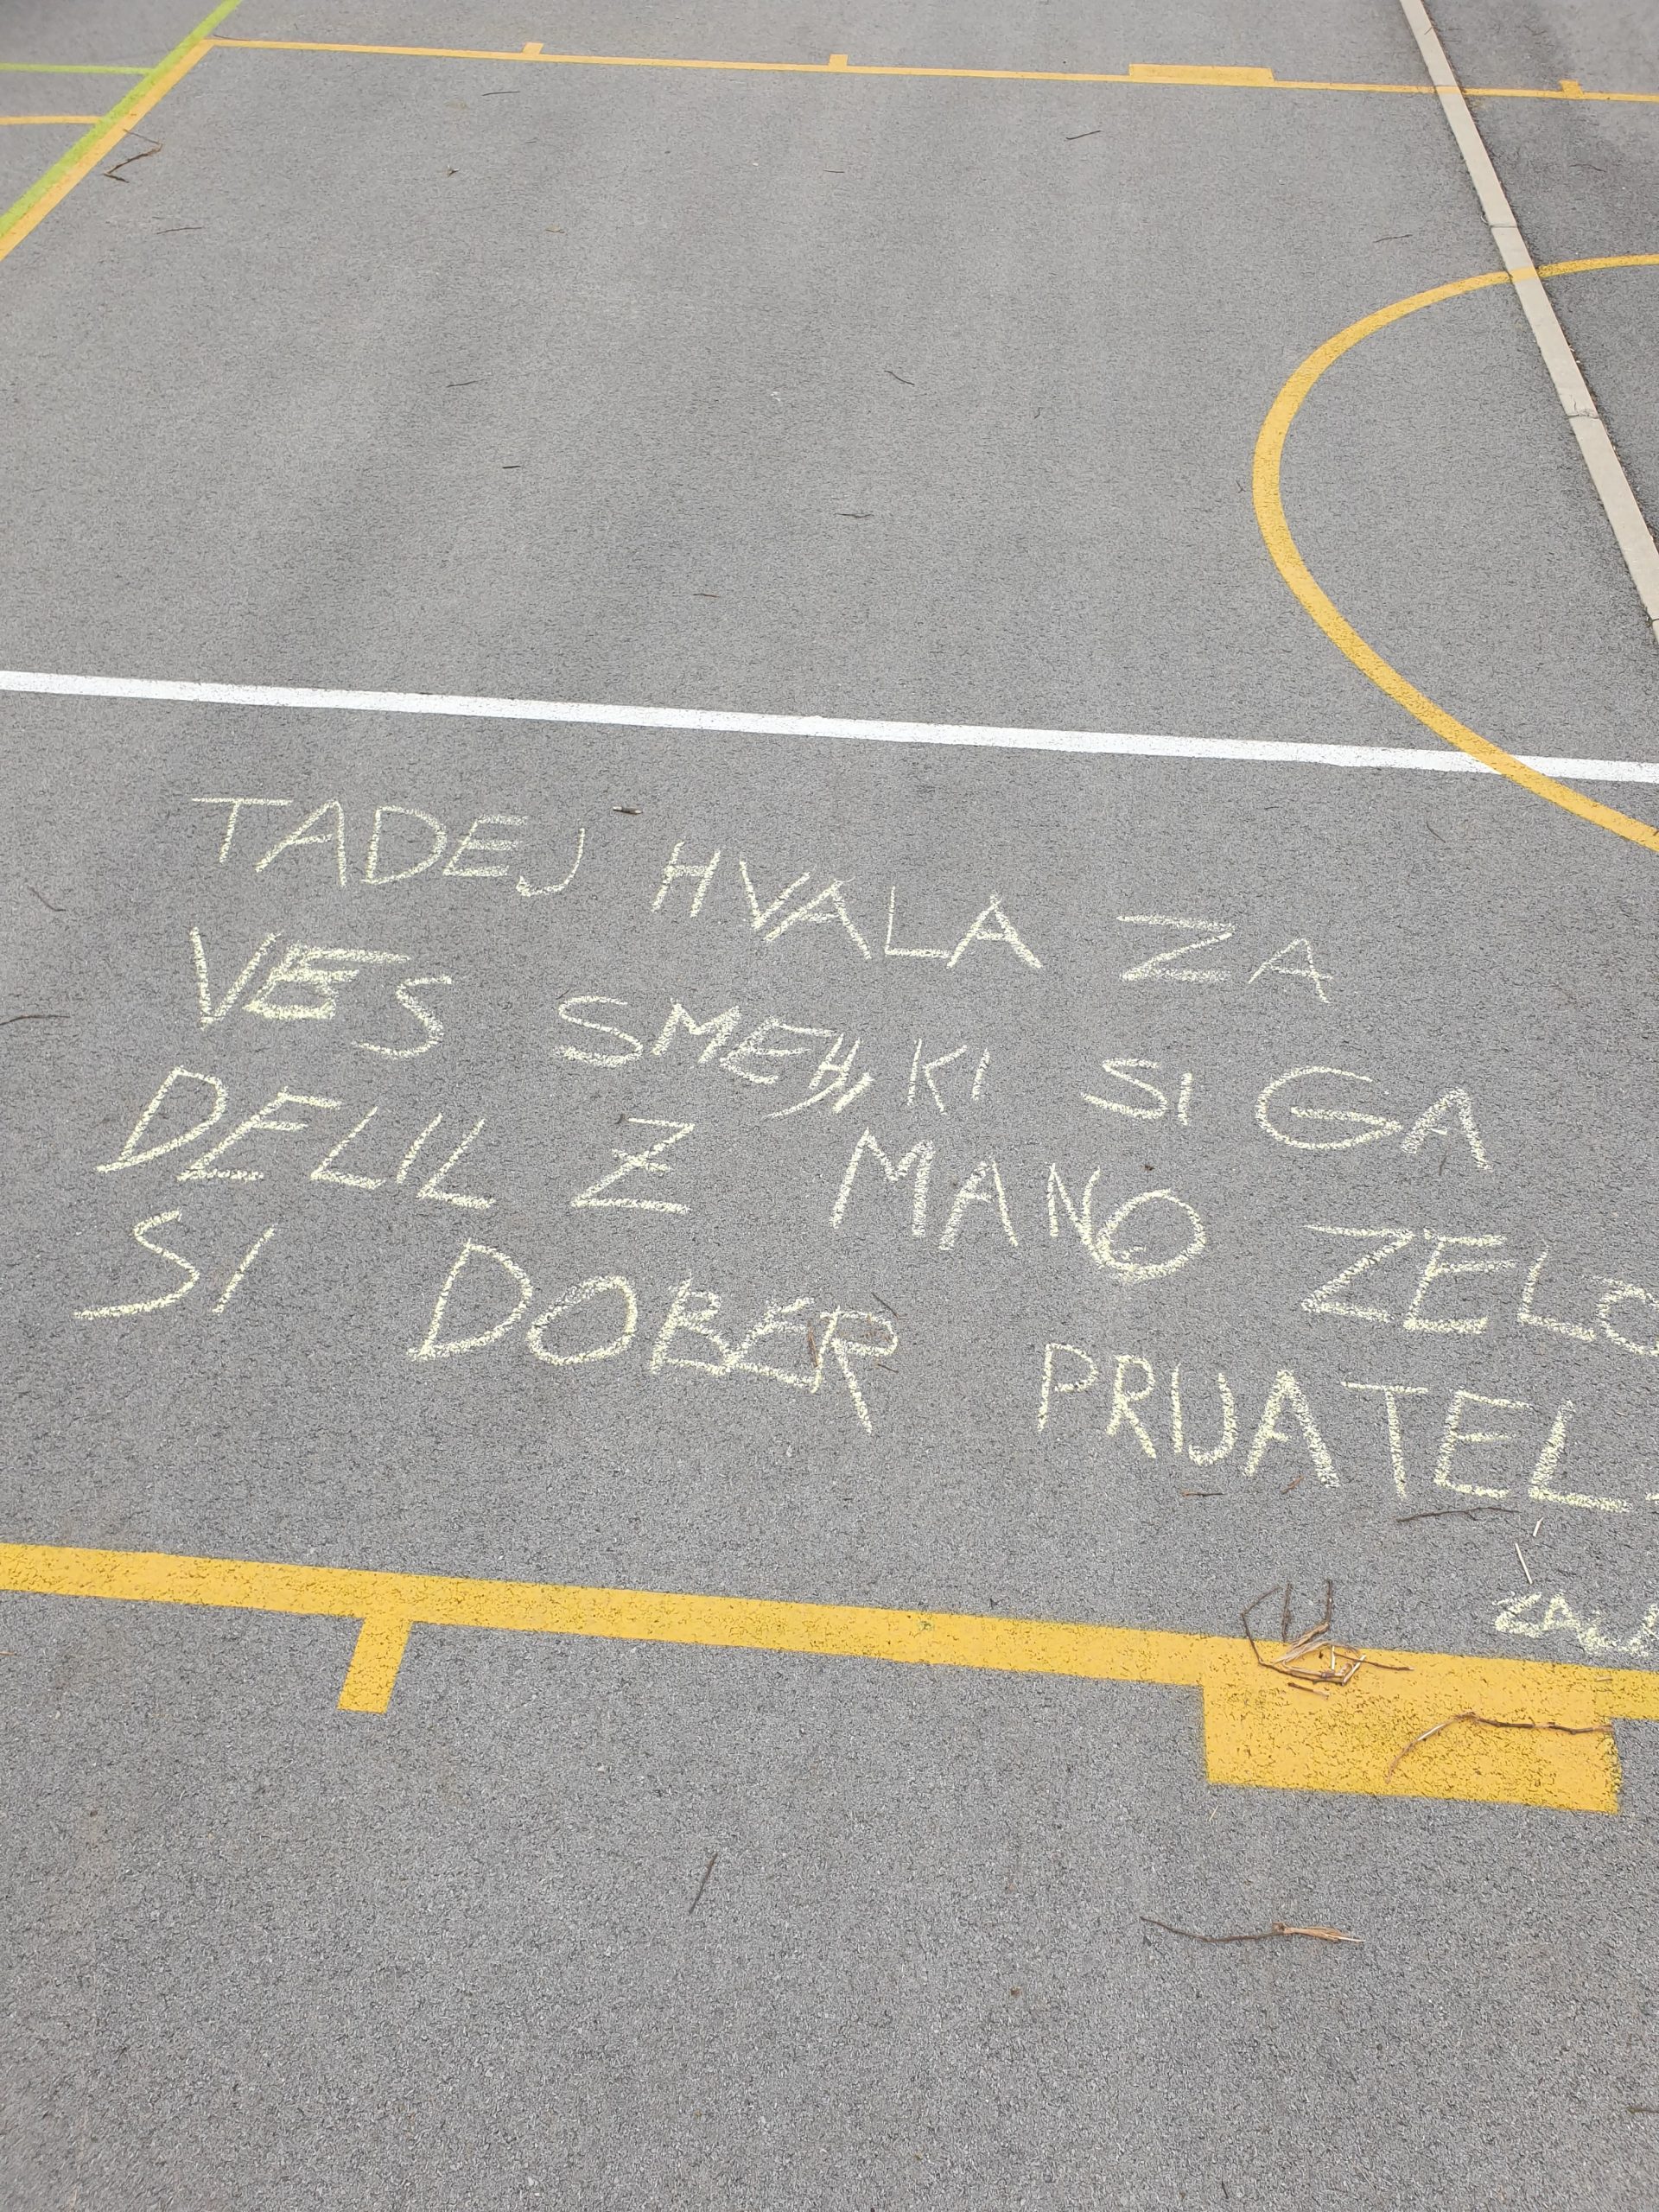 TADEJ HVALA ZA
VES SMEH, KI SI GA
DELIL Z MANO ZELO
SI DOBER PRIJATELJ